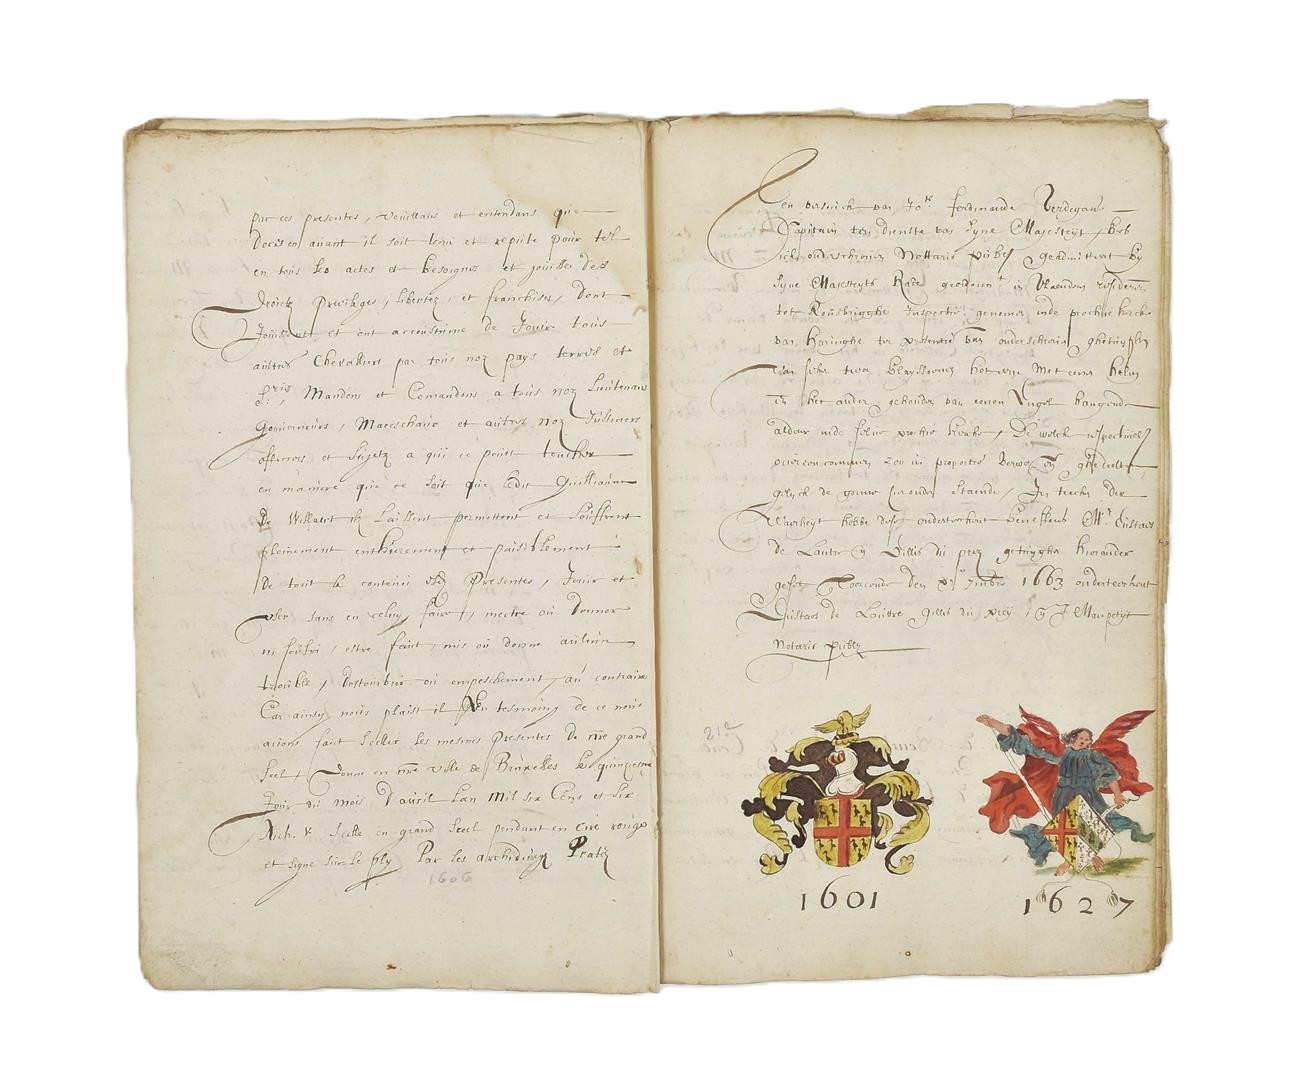 par ces presentes, veuillans et entendans que
Doresenavant il soit tenu et repute pour tel
en tous les actes et besoignes et jouisse des
droictz privileges, libertez, et franchises, dont
Jouissent et ont accoustume de Jouir tous
aultres Chevalliers par tous noz pays terres et
S.ries Mandons et Comandons a tous noz Lieutenans
Gouverneurs, Mareschaux et autres noz Justiciers
officiers et Subjetz a qui ce peult toucher
en maniere que ce soit que ledit Guilliaume
De Willaert ilz Laissent permettent et souffrent
plainement entthierement et paisiblement
de tout le contenu esd. Presentes, Jouir et
user sans en celuy faire, mectre ou donner
ny souffrir, estre faict, mis ou donne aulcun
trouble, destourbier ou empeschement au contraire
Car ainsy nous plaist il En tesmoing de ce nous
avons faict Seeller les mesmes Presentes de nre grand
Seel, Donne en nre ville de Bruxelles le quinziesme
Jour du mois D'avril L'an Mil six Cens et Six
Seelle en grand Seel pendant en Cire rouge
et signe sur le ply Par les archiducqz Pratz
1606
Ten versoucke van Jor. Ferdinande Verdegans
Capitain ten dienste van Syne Majesteyt, heb
ick onderschreven Nottaris publ. geadmitteert by
Syne Majesteyts Rade geordonnt. in Vlaendren resideren
tot Rousbrigghe Inspectie genomen inde prochie kercke
van Haringhe ter presentie van onderschreven ghetuyghen
van twee blaysoenen het eene Met eenen helm
en het ander gehouden van eenen Engel hangende
aldaer inde selve prochie kercke, De welcke respective
ghedeelte
gelyck de gonne hieronder staende, In teecken der
Waerheyt hebbe dese onderteeckent beneffens Mr. Eustaes
de Lautre en Gillis du prey getuyghe hieronder
Toorconde den 1663 onderteeckent
Eustaes de Lautre Gillis du prey, en J Maupetyt
Notaris publ.
1601
1627